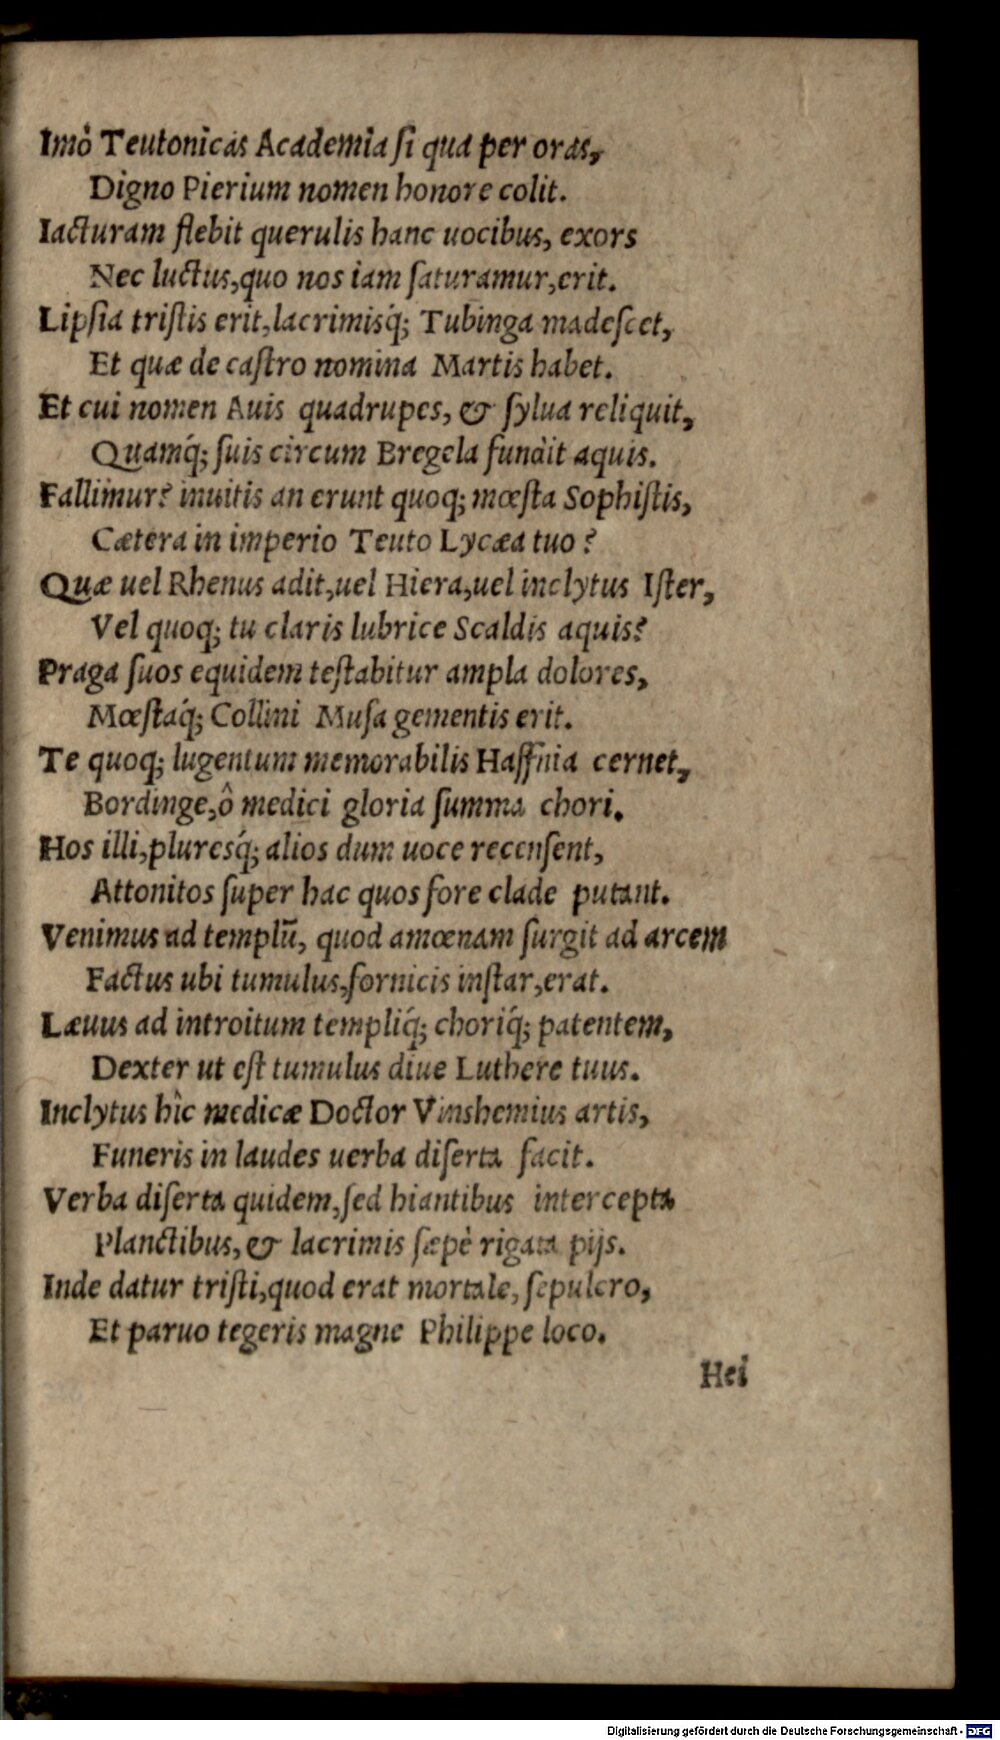 Imò Teutonicas Academia ſi qua per oras,
Digno Pierium nomen honore colit.
Iacturam flebit querulis hanc uocibus, exors
Nec luctus, quo nos iam ſaturamur, erit.
Lipſia triſtis erit, lacrimisq́; Tubinga madeſcet,
Et quæ de caſtro nomina Martis habet.
Et cui nomen Auis quadrupes, & ſylua reliquit,
Quamq́; ſuis circum Bregela fundit aquis.
Fallimur? inuitis an erunt quoq; mœſta Sophiſtis,
Cætera in imperio Teuto Lycæa tuo?
Quæ uel Rhenus adit, uel Hiera, uel inclytus Iſter,
Vel quoq; tu claris lubrice Scaldis aquis?
Praga ſuos equidem teſtabitur ampla dolores,
Mœſtaq́; Collini Muſa gementis erit.
Te quoq; lugentum memorabilis Haffnia cernet,
Bordinge, ô medici gloria ſumma chori.
Hos illi, pluresq́; alios dum uoce recenſent,
Attonitos ſuper hac quos fore clade putant.
Venimus ad templū, quod amœnam ſurgit ad arcem
Factus ubi tumulus, fornicis inſtar, erat.
Læuus ad introitum templiq́; choriq́; patentem,
Dexter ut eſt tumulus diue Luthere tuus.
Inclytus hîc medicæ Doctor Vinshemius artis,
Funeris in laudes uerba diſerta facit.
Verba diſerta quidem, ſed hiantibus intercepta
Planctibus, & lacrimis ſæpè rigata pijs.
Inde datur triſti, quod erat mortale, ſepulcro,
Et paruo tegeris magne Philippe loco.
Hei
Digitalisierung gefördert durch die Deutsche Forschungsgemeinschaft - DFG